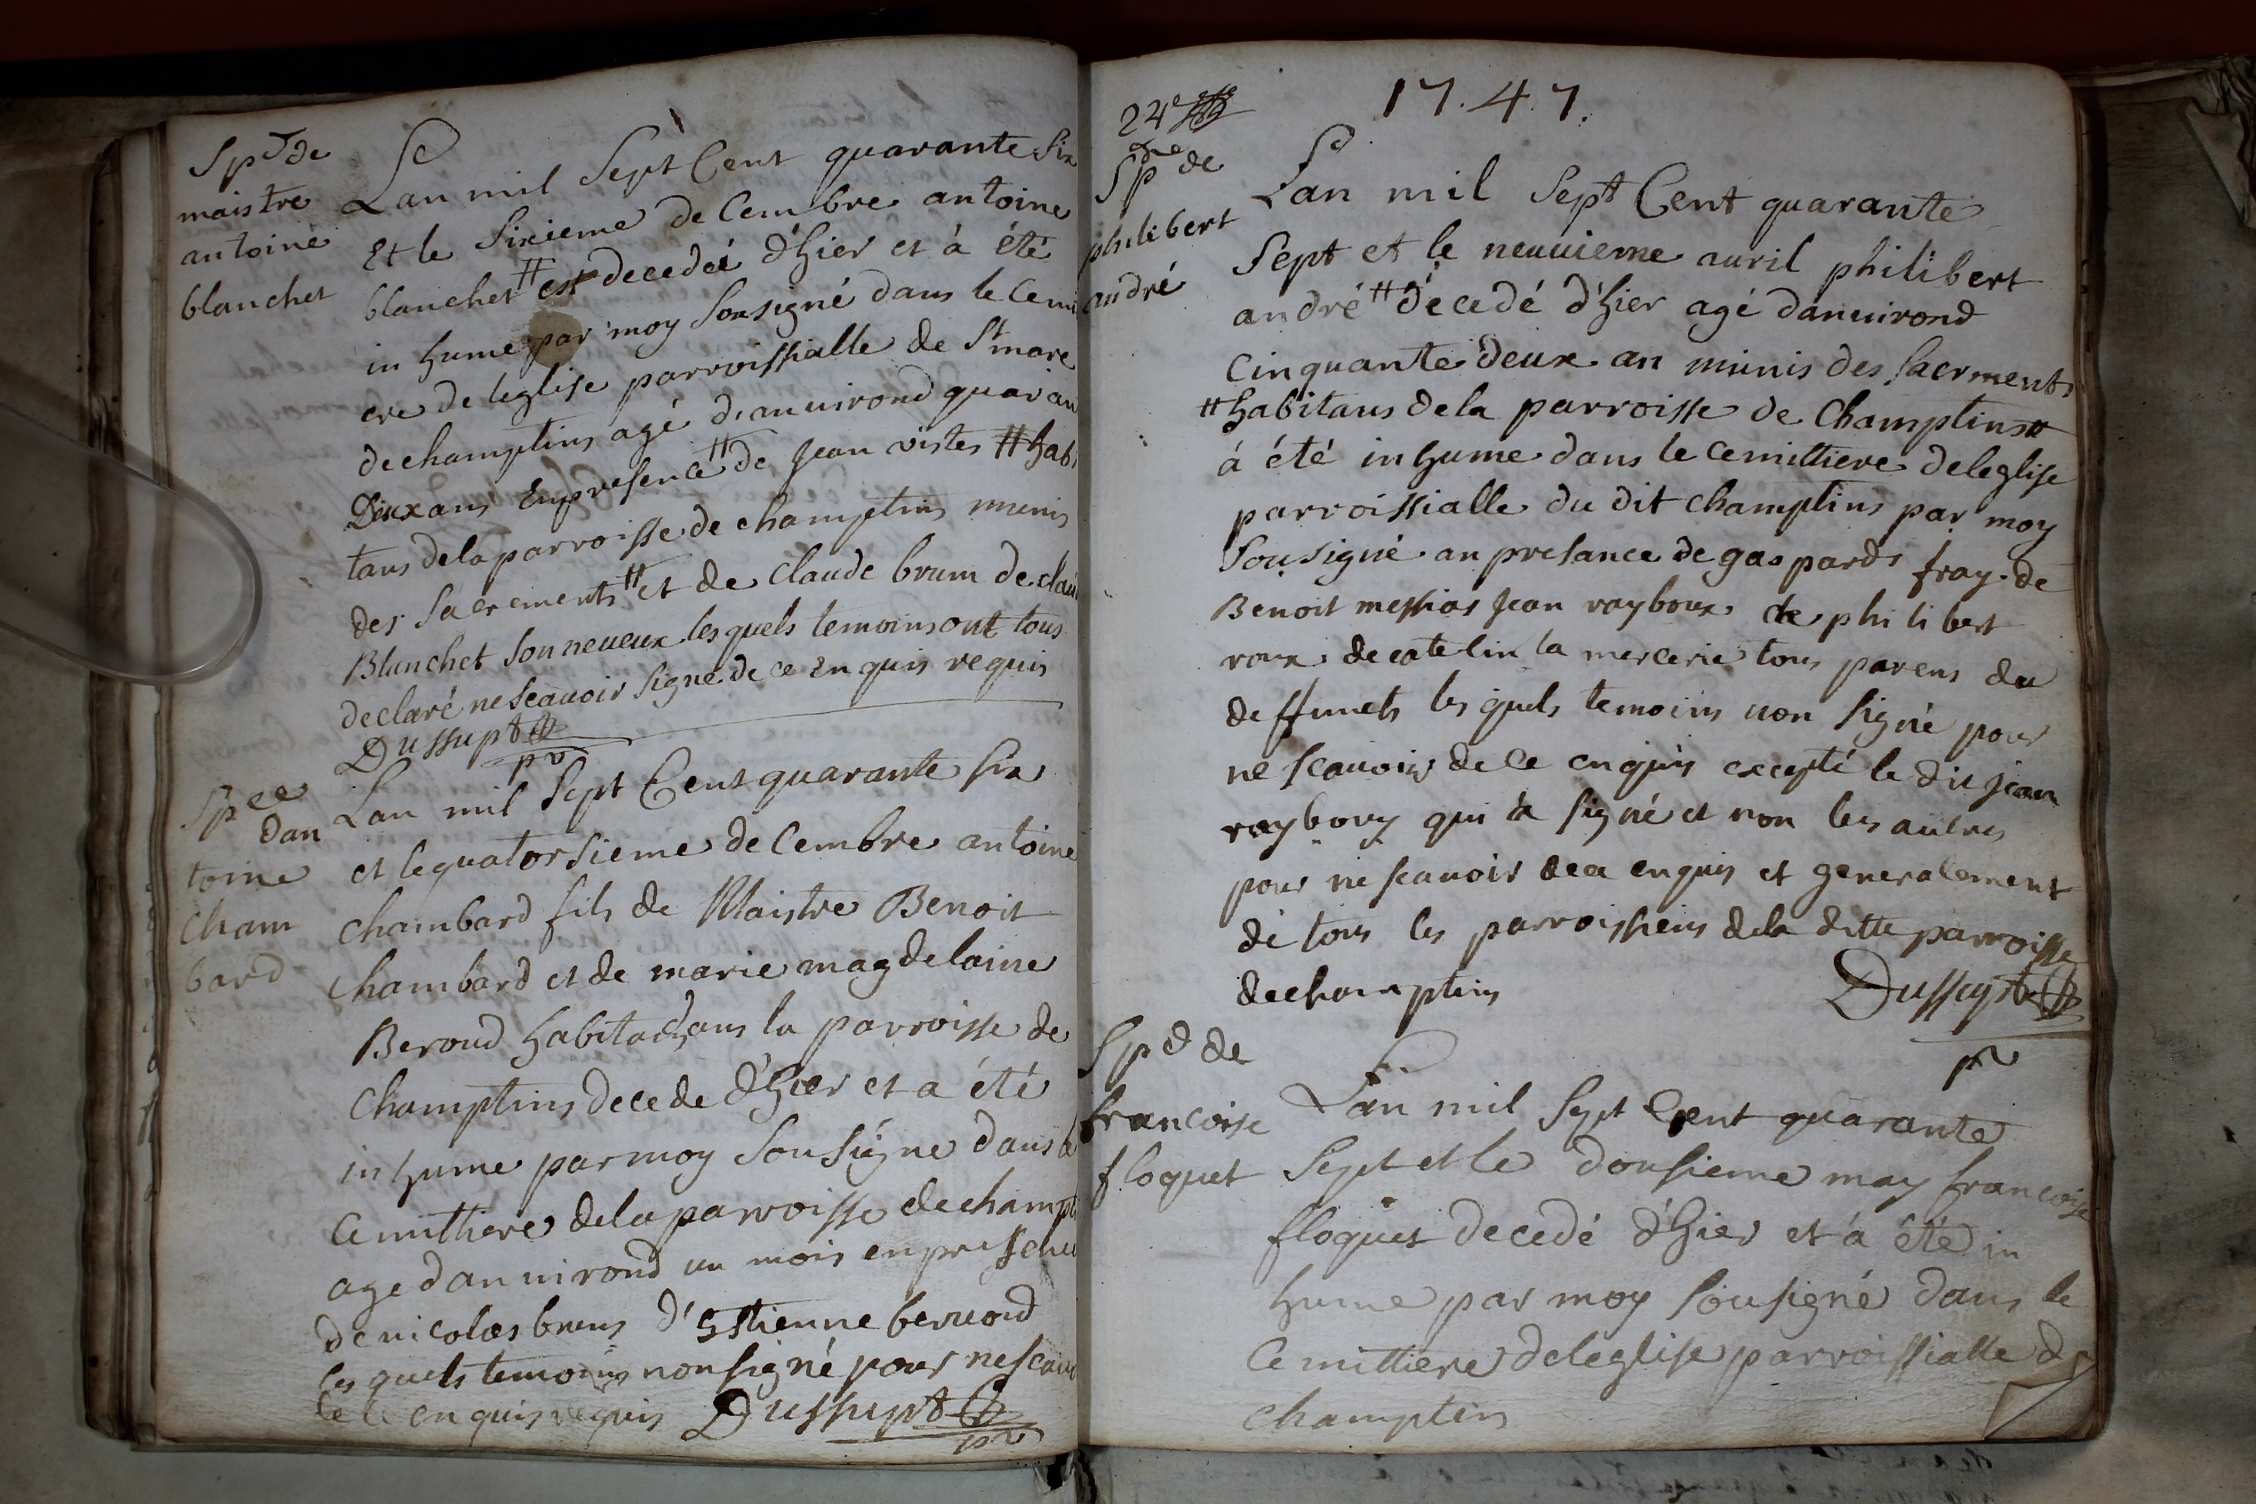 Spr de
maistre
antoine
blanchet
Lan mil Sept Cent quarante Six
Et le Sixieme de Cembre antoine
blanchet # est decedéé d'hier et à été
in hume par moy Sousigné dans le Cemi
ere de leglise parroissialle de St mare
de champtins agé d'anuirond quaran
Deux ans Enpresence # de Jean vistes # habi
tans dela parroisse de champtins munis
des Sacrements # et de Claude brum de clau
Blanchet son neueux lesquels temoins ont tous
declaré ne scauoir signé de ce Enquis requis
Dussupt
pr
Spce
dan
toine
Cham
bard
Lan mil Sept Cent quarante six
et le quatorsieme de Cembre antoine
Chambard fils de Maistre Benoit
Chambard et de marie magdelaine
Beroud habita dans la parroisse de
Champtins decede d'hier et a été
in hume par moy Sousigne dans le
Cemittiere dela parroisse de champti
age danuirond un mois en pressence
de nicolas bruns d'Estienne berroud
les quels temoins non signé pour ne scauo
de ce enquis requis Dussupt
pr
1747.
24e
Spre de
philibert
andré
Lan mil Sept Cent quarante
Sept et le neuuieme auril philibert
andré # décedé d'hier agé danuirond
Cinquante deux an munis des Sacrments
# habitans dela parroisse de Champtins #
à été inhume dans le Cemittiere deleglise
parroissialle du dit Champtins par moy
Sousigné an presance de gaspards fray de
Benoit messias Jean rayboux de philibert
roux de catelin la mercerie tous parens du
deffunets les quels temoins non signé pour
ne scauoir de ce enquis excepté le dit jean
raybouy qui à signé et non les autres
pour ne scauoir de ce enquis et generalement
de tous les parroissiens dela ditte parroisse
de champtins
Dussupt
pr
Spd de
francoise
floquet
Lan mil Sept Cent quarante
Sept et le dousieme may francoise
floquet decedé d'hier et à été in
hume par moy sousigné dans le
Cemittiere deleglise parroissialle de
champtins